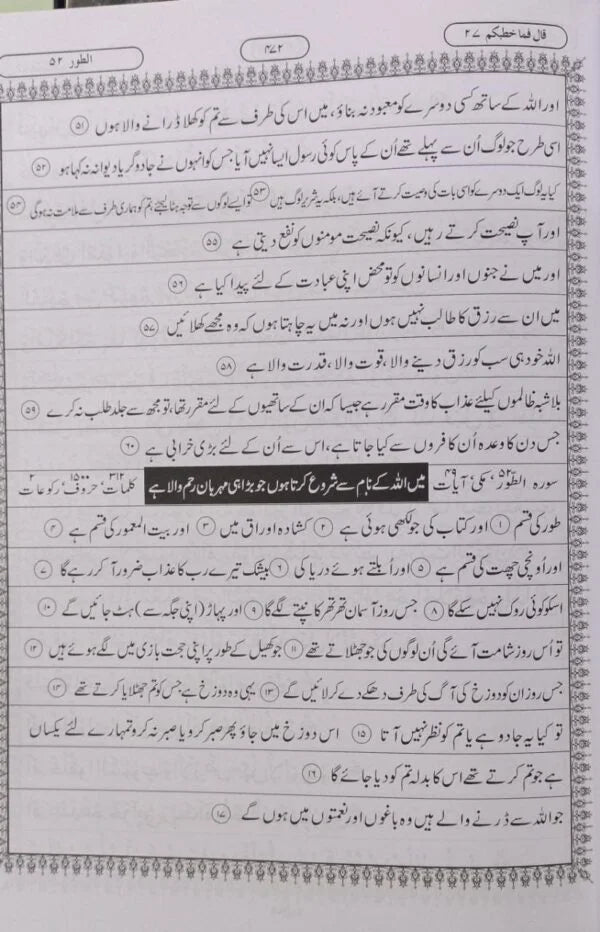 قال فما خطبکم ۲۷
۴۷۲
الطور ۵۲
اور اللہ کے ساتھ کسی دوسرے کو معبود نہ بناؤ، میں اس کی طرف سے تم کو کھلا ڈرانے والا ہوں ۵۱
اسی طرح جو لوگ اُن سے پہلے تھے اُن کے پاس کوئی رسول ایسا نہیں آیا جس کو انہوں نے جادوگر یا دیوانہ نہ کہا ہو ۵۲
کیا یہ لوگ ایک دوسرے کو اسی بات کی وصیت کرتے آئے ہیں، بلکہ یہ شریر لوگ ہیں ۵۳ تو ایسے لوگوں سے توجہ ہٹا لیجئے تم کو ہماری طرف سے ملامت نہ ہوگی ۵۴
اور آپ نصیحت کرتے رہیں، کیونکہ نصیحت مومنوں کو نفع دیتی ہے ۵۵
اور میں نے جنوں اور انسانوں کو تو محض اپنی عبادت کے لئے پیدا کیا ہے ۵۶
میں ان سے رزق کا طالب نہیں ہوں اور نہ میں یہ چاہتا ہوں کہ وہ مجھے کھلائیں ۵۷
اللہ خود ہی سب کو رزق دینے والا، قوت والا، قدرت والا ہے ۵۸
بلاشبہ ظالموں کیلئے عذاب کا وقت مقرر ہے جیسا کہ ان کے ساتھیوں کے لئے مقرر تھا، تو مجھ سے جلد طلب نہ کرے ۵۹
جس دن کا وعدہ اُن کافروں سے کیا جاتا ہے، اس سے اُن کے لئے بڑی خرابی ہے ۶۰
سورہ الطّور ۵۲، مکی، آیات ۴۹ میں اللہ کے نام سے شروع کرتا ہوں جو بڑا ہی مہربان رحم والا ہے کلمات ۳۱۲، حروف ۱۵۰۰، رکوعات ۲
طور کی قسم ۱ اور کتاب کی جو لکھی ہوئی ہے ۲ کشادہ اوراق میں ۳ اور بیت المعمور کی قسم ہے ۴
اور اُونچی چھت کی قسم ہے ۵ اور اُبلتے ہوئے دریا کی ۶ بیشک تیرے رب کا عذاب ضرور آ کر رہے گا ۷
اسکو کوئی روک نہیں سکے گا ۸ جس روز آسمان تھر تھر کانپنے لگے گا ۹ اور پہاڑ (اپنی جگہ سے) ہٹ جائیں گے ۱۰
تو اُس روز شامت آئے گی اُن لوگوں کی جو جھٹلاتے تھے ۱۱ جو کھیل کے طور پر اپنی حجت بازی میں لگے ہوئے ہیں ۱۲
جس روز ان کو دوزخ کی آگ کی طرف دھکے دے کر لائیں گے ۱۳ یہی وہ دوزخ ہے جس کو تم جھٹلایا کرتے تھے ۱۴
تو کیا یہ جادو ہے یا تم کو نظر نہیں آتا ۱۵ اس دوزخ میں جاؤ پھر صبر کرو یا صبر نہ کرو تمہارے لئے یکساں
ہے جو تم کرتے تھے اس کا بدلہ تم کو دیا جائے گا ۱۶
جو اللہ سے ڈرنے والے ہیں وہ باغوں اور نعمتوں میں ہوں گے ۱۷